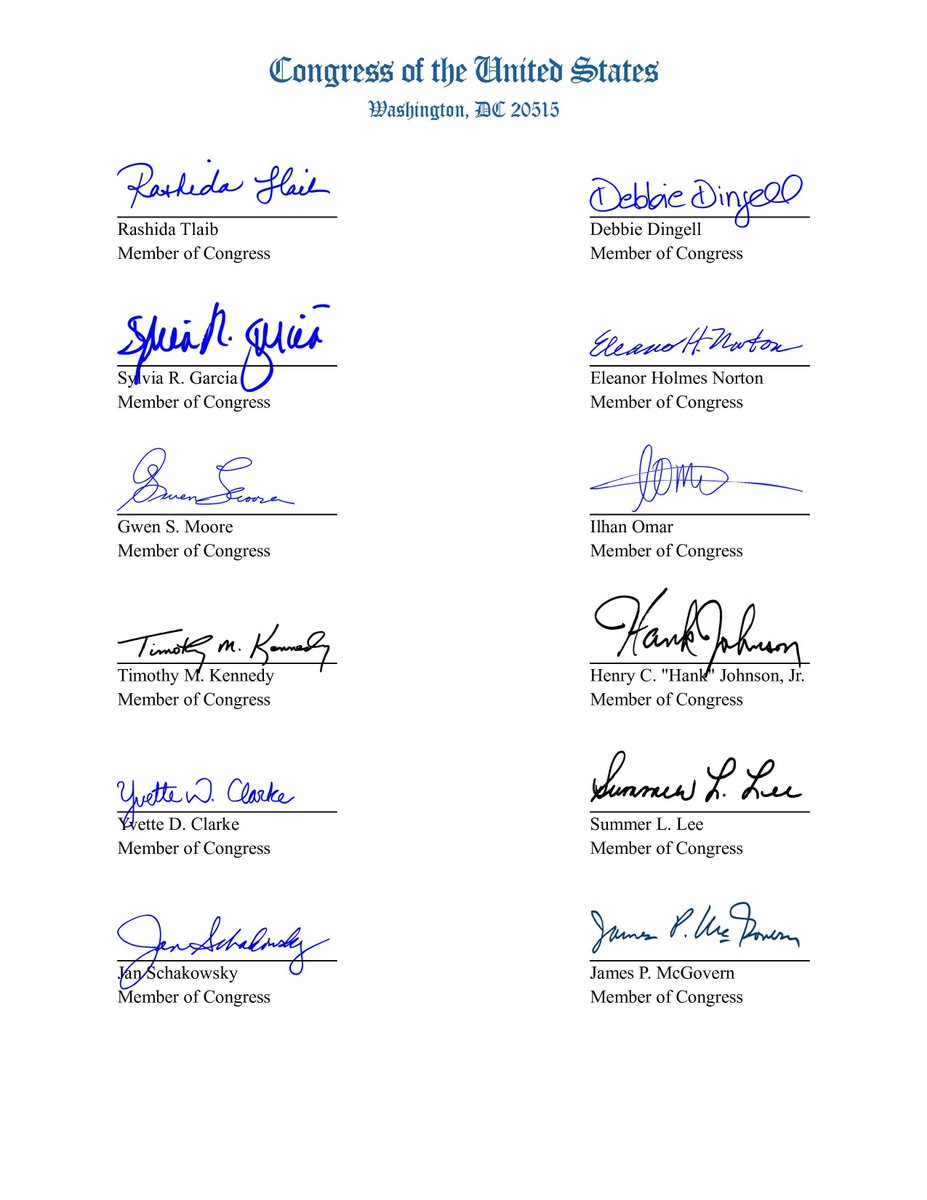 Congress of the United States
Washington, DC 20515
Rashida Tlaib
Rashida Tlaib
Member of Congress
Debbie Dingell
Debbie Dingell
Member of Congress
Sylvia R. Garcia
Sylvia R. Garcia
Member of Congress
Eleanor H. Norton
Eleanor Holmes Norton
Member of Congress
Gwen S Moore
Gwen S. Moore
Member of Congress
Ilhan Omar
Member of Congress
Timothy M. Kennedy
Timothy M. Kennedy
Member of Congress
Hank Johnson
Henry C. "Hank" Johnson, Jr.
Member of Congress
Yvette D. Clarke
Yvette D. Clarke
Member of Congress
Summer L. Lee
Summer L. Lee
Member of Congress
Jan Schakowsky
Jan Schakowsky
Member of Congress
James P. McGovern
James P. McGovern
Member of Congress